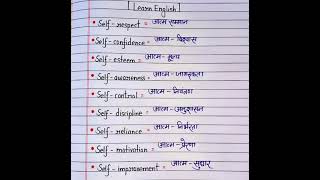 [Learn English]
• Self - respect = आत्म सम्मान
• Self - confidence = आत्म - विश्वास
• Self - esteem = आत्म - मूल्य
• Self - awareness = आत्म - जागरूकता
• Self - control = आत्म - नियंत्रण
• Self - discipline = आत्म - अनुशासन
• Self - reliance = आत्म - निर्भरता
• Self - motivation = आत्म - प्रेरणा
• Self - improvement = आत्म - सुधार